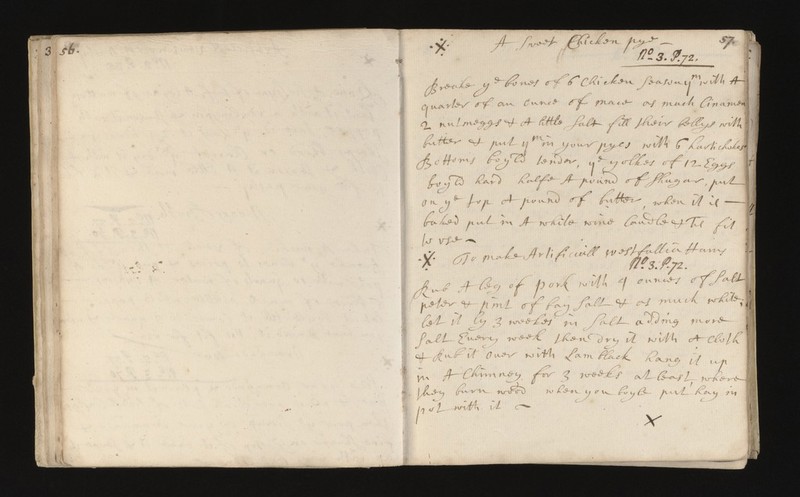 3 56.
57.
A sweet Chicken pye
No 3. P. 72.
Breake ye bones of 6 Chicken season ym with A
quarter of an ounce of mace as much Cinamon
2 nutmeggs & A little salt fill their bellys with
butter & put ym in your pyes with 6 hartichokes
Bottoms boyl'd tender, ye yolkes of 12 Eggs
boyl'd hard halfe A pound of Shugar, put
on ye top A pound of butter, when it is
baked put in A white wine Caudle & Tis fit
to use
To make Artificiall westfallia Hams
No 3. P. 72.
Rub A leg of pork with 4 ounces of Salt
peter & pint of bay Salt & as much white,
let it ly 3 weekes in salt adding more
salt Every week then dry it with A Cloth
& Rub it over with Lamblack hang it up
in A Chimney for 3 weeks at least, where
they burn wood when you boyle put hay in
pot with it